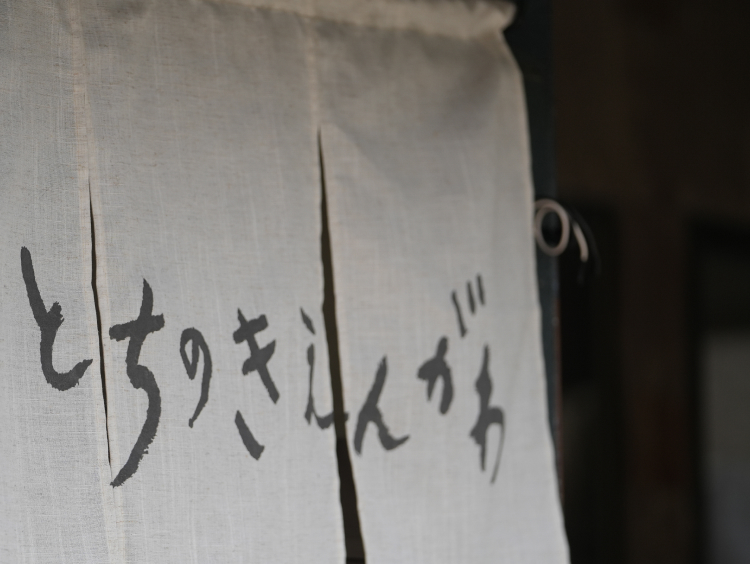 とちのきえんがわ